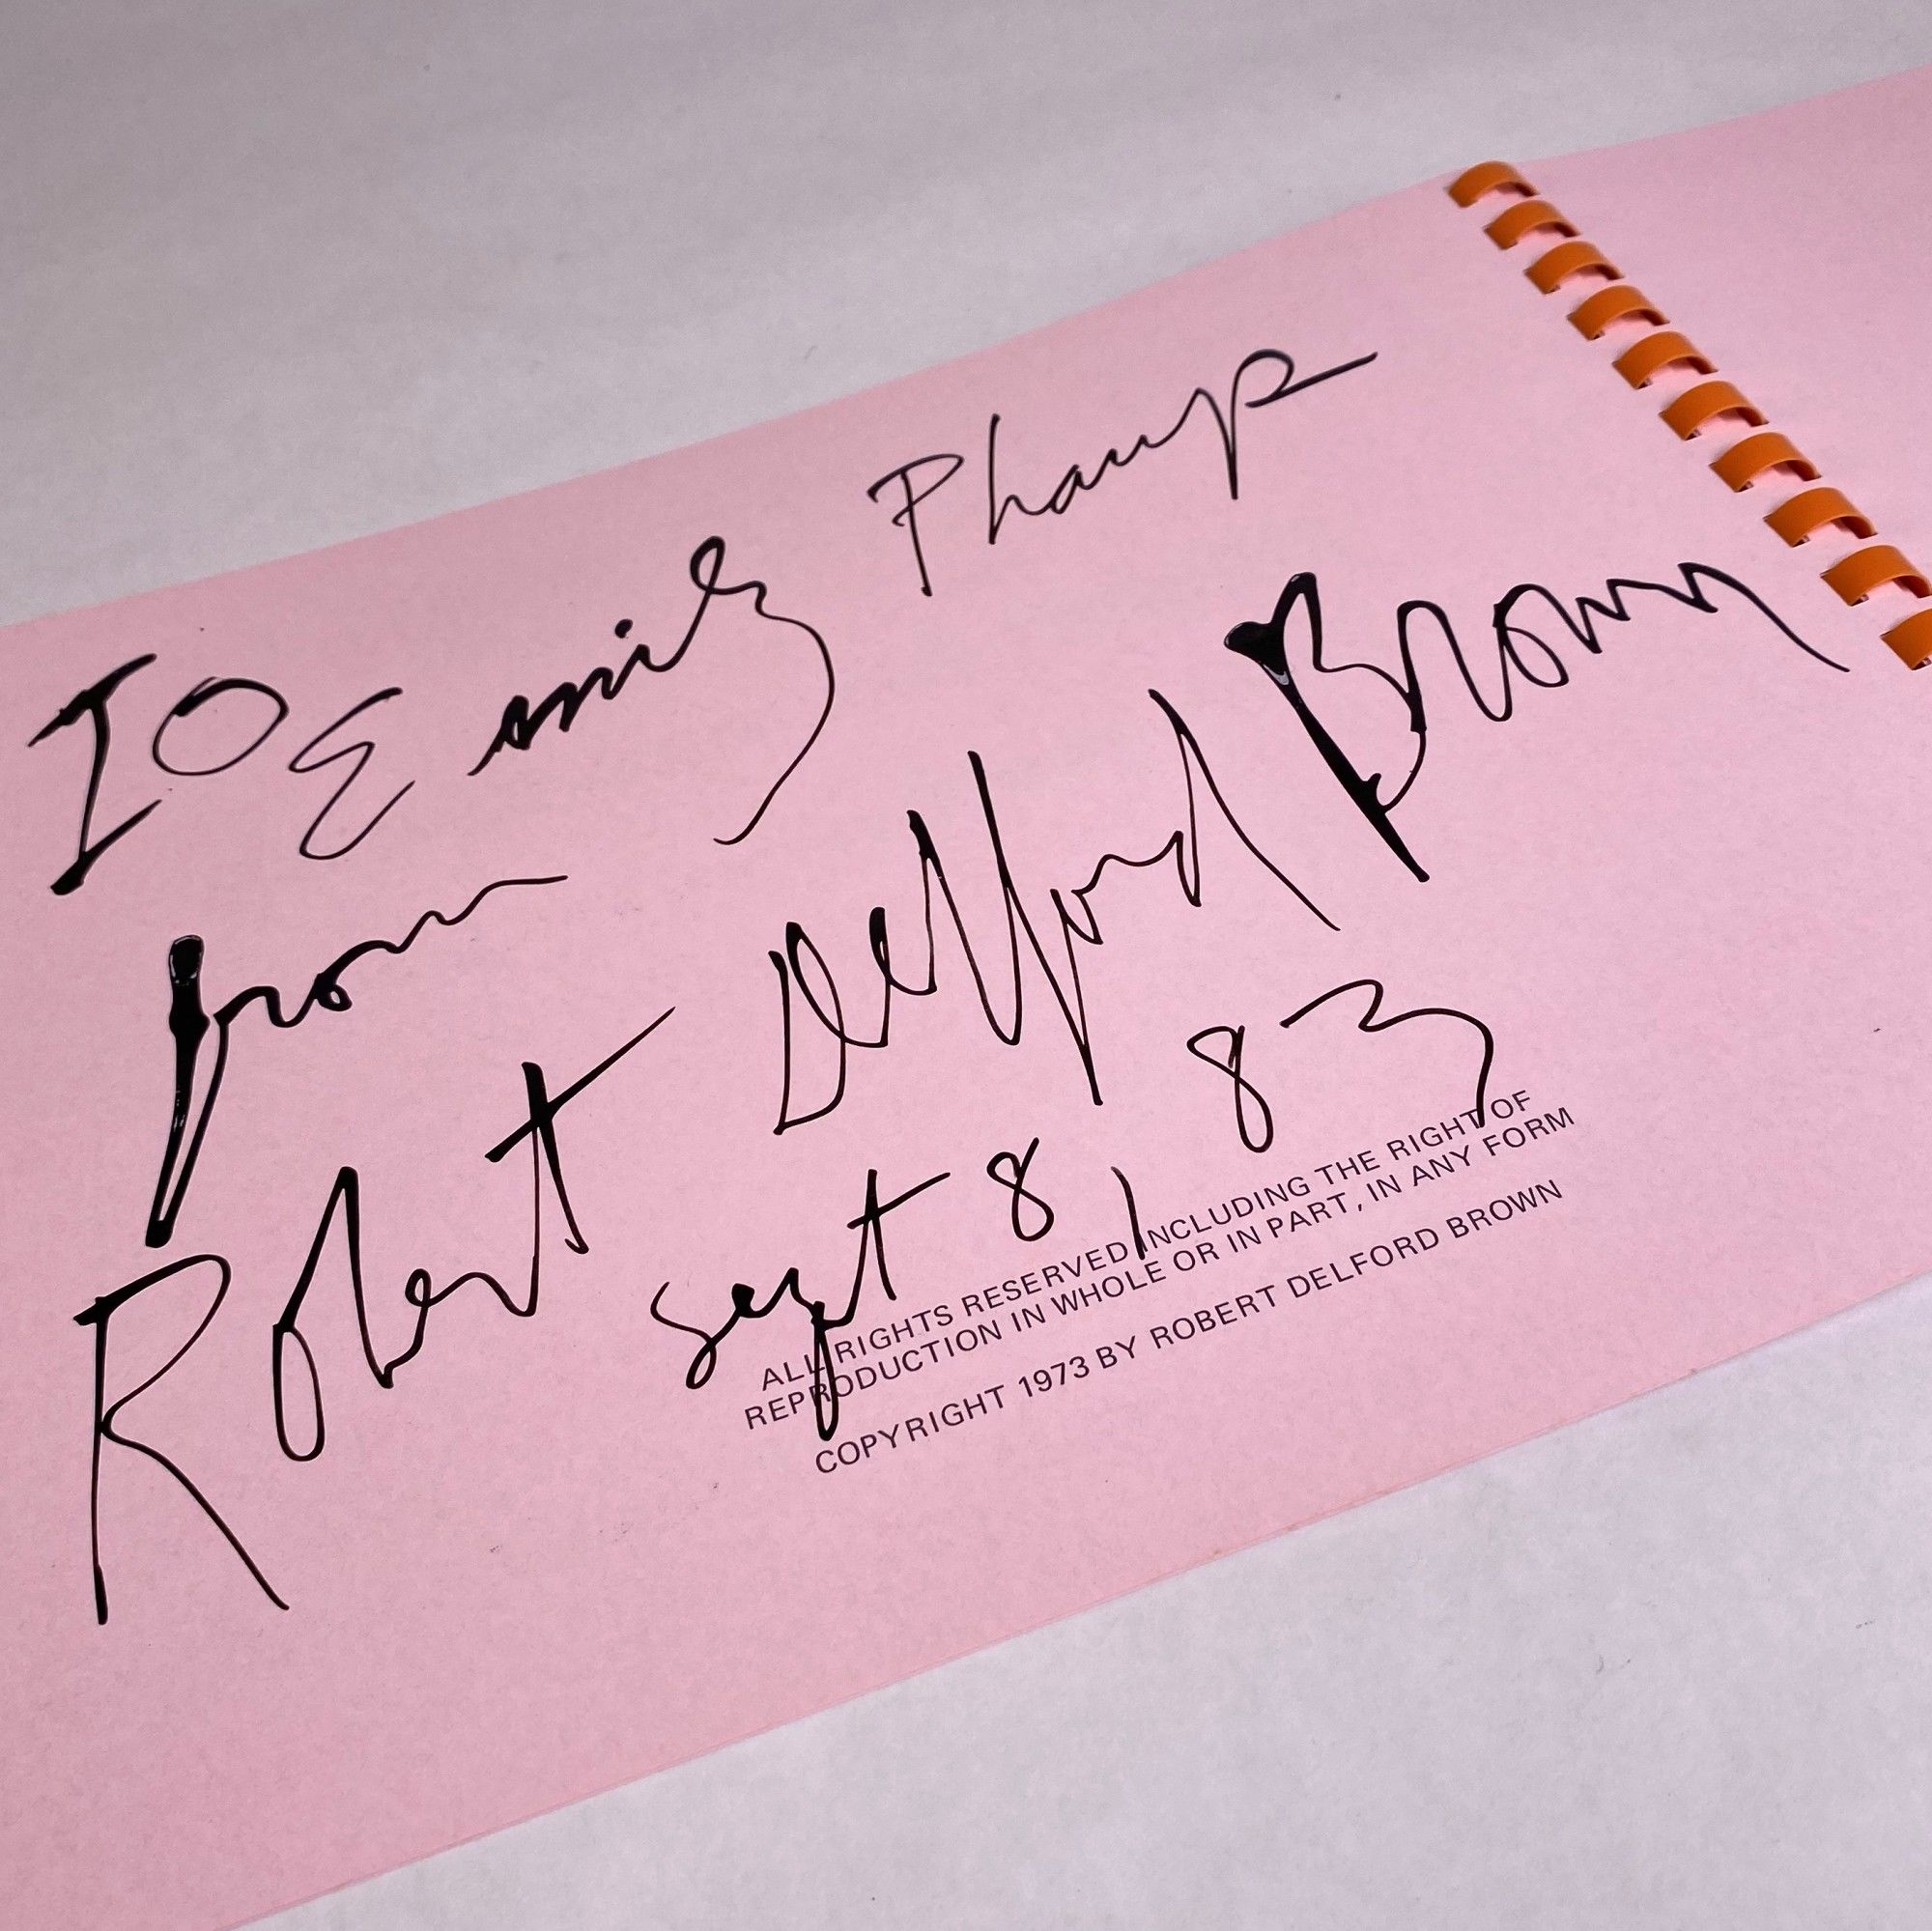 To Emily Phamp
from
Robert Delford Brown
Sept 8, 83
ALL RIGHTS RESERVED INCLUDING THE RIGHT OF
REPRODUCTION IN WHOLE OR IN PART, IN ANY FORM
COPYRIGHT 1973 BY ROBERT DELFORD BROWN